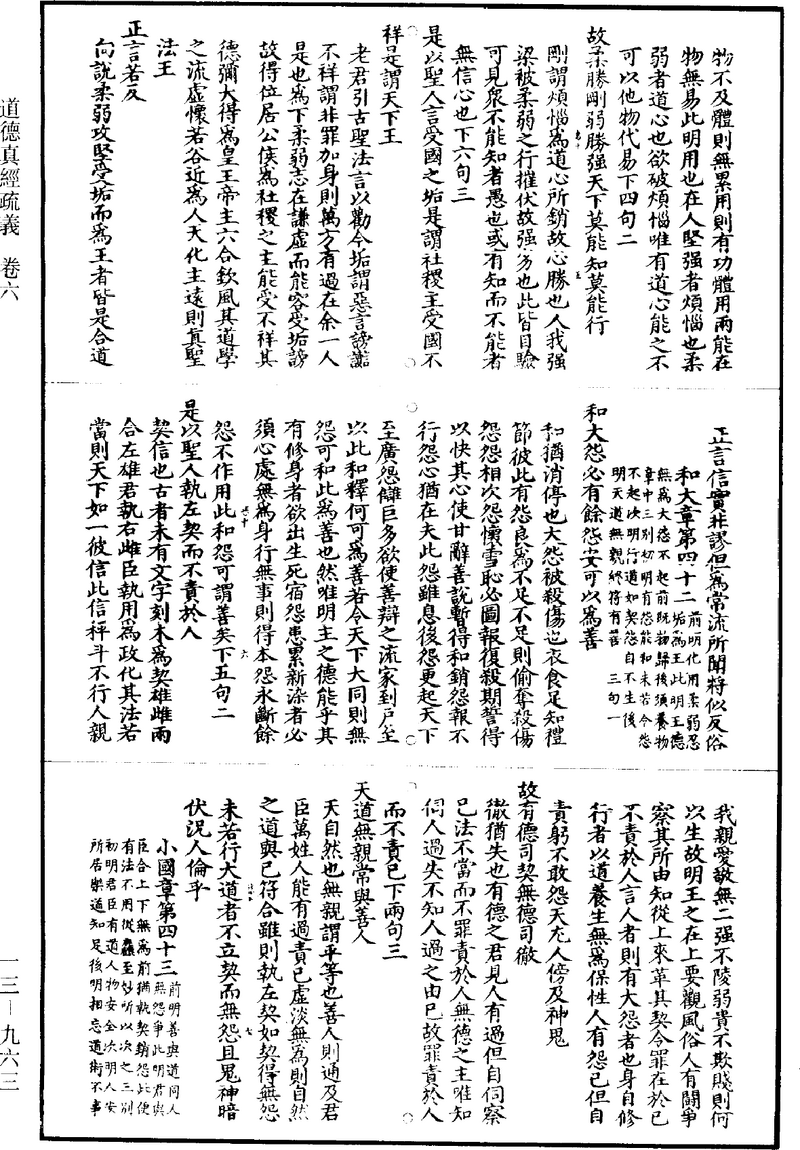 物不及體則無累用則有功體用兩能在
物無易此明用也在人堅强者煩惱也柔
弱者道心也欲破煩惱唯有道心能之不
可以他物代易下四句二
故柔勝剛弱勝强天下莫能知莫能行
剛謂煩惱為道心所銷故心勝也人我强
梁被柔弱之行摧伏故强劣也此皆目驗
可見衆不能知者愚也或有知而不能者
無信心也下六句三
是以聖人言受國之垢是謂社稷主受國不
祥是謂天下王
老君引古聖法言以勸今垢謂惡言謗讟
不祥謂非罪加身則萬方有過在余一人
是也為下柔弱志在謙虛而能容受垢謗
故得位居公侯為社稷之主能受不祥其
德彌大得為皇王帝主六合欽風其道學
之流虛懷若谷近為人天化主遠則真聖
法王
正言若反
向說柔弱攻堅受垢而為王者皆是合道
正言信實非謬但為常流所聞將似反俗
和大章第四十二
前明化用柔弱忍
垢為王此明王德
無為大怨不起前既物歸後須養物
章中三別初明有怨能和未若令怨
不起次明行道如契怨自不生後
明天道無親終符有善
三句一
和大怨必有餘怨安可以為善
和猶消停也大怨被殺傷也衣食足知禮
節彼此有怨良為不足不足則偷奪殺傷
怨怨相次怨懷雪恥必圖報復殺期誓得
以快其心使甘辭善說暫得和銷怨報不
行怨心猶在夫此怨雖息後怨更起天下
至廣怨讎巨多欲使善辯之流家到戶至
以此和釋何可為善若令天下大同則無
怨可和此為善也然唯明主之德能乎其
有修身者欲出生死宿怨患累新染者必
須心處無為身行無事則得本怨永斷餘
怨不作用此和怨可謂善矣下五句二
是以聖人執左契而不責於人
契信也古者未有文字刻木為契雄雌兩
合左雄君執右雌臣執用為政化其法若
當則天下如一彼信此信秤斗不行人親
我親愛敬無二强不陵弱貴不欺賤則何
以生故明王之在上要觀風俗人有鬪爭
察其所由知從上來革其契令罪在於已
不責於人言人者則有大怨者也身自修
行者以道養生無為保性人有怨已但自
責躬不敢怨天尤人傍及神鬼
故有德司契無德司徹
徹猶失也有德之君見人有過但自伺察
已法不當而不罪責於人無德之主唯知
伺人過失不知人過之由已故罪責於人
而不責已下兩句三
天道無親常與善人
天自然也無親謂平等也善人則通及君
臣萬姓人能有過責已虛淡無為則自然
之道與已符合雖則執左契如契得無怨
未若行大道者不立契而無怨且鬼神暗
伏況人倫乎
小國章第四十三
前明善與道同人
無怨爭此明君與
臣合上下無為前猶執契銷怨此使
有法不用從麤至妙所以次之三別
初明君臣有道人物安全次明人安
所居樂道知足後明相忘道術不事
道德真經疏義　卷六
一三－九六三